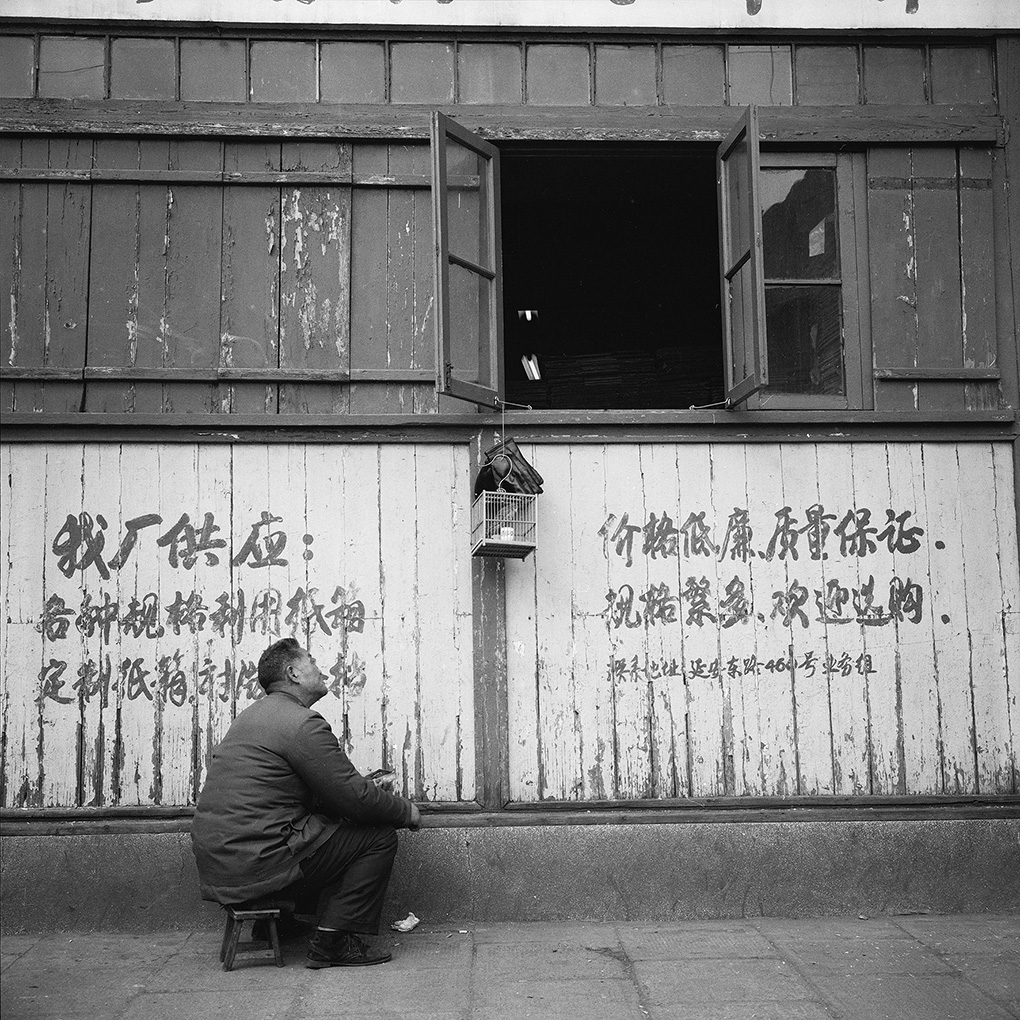 我厂供应：
各种规格利用纸箱
定制纸箱 档
价格低廉、质量保证.
规格繁多、欢迎选购.
联系地址 延安东路460号业务组